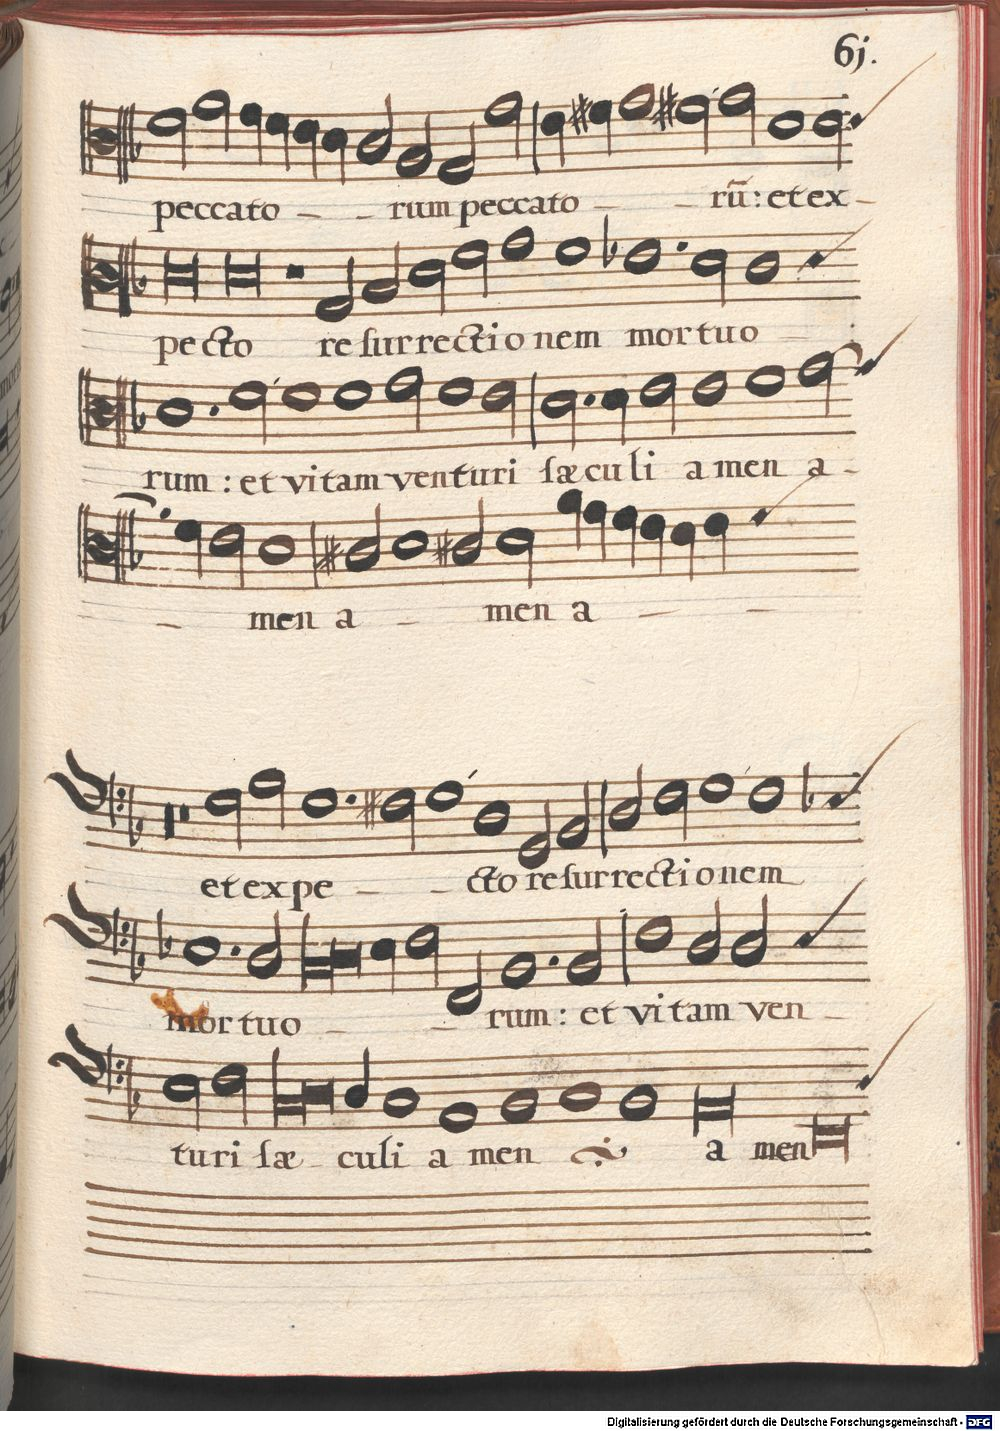 6j.
peccato - - rum peccato - - rū: et ex -
pecto resurrectionem mortuo -
rum: et vitam venturi sæculi amen a -
- men a - men a - -
et expe - - cto resurrectionem
mortuo - - rum: et vitam ven -
turi sæ - culi amen a men
Digitalisierung gefördert durch die Deutsche Forschungsgemeinschaft - DFG